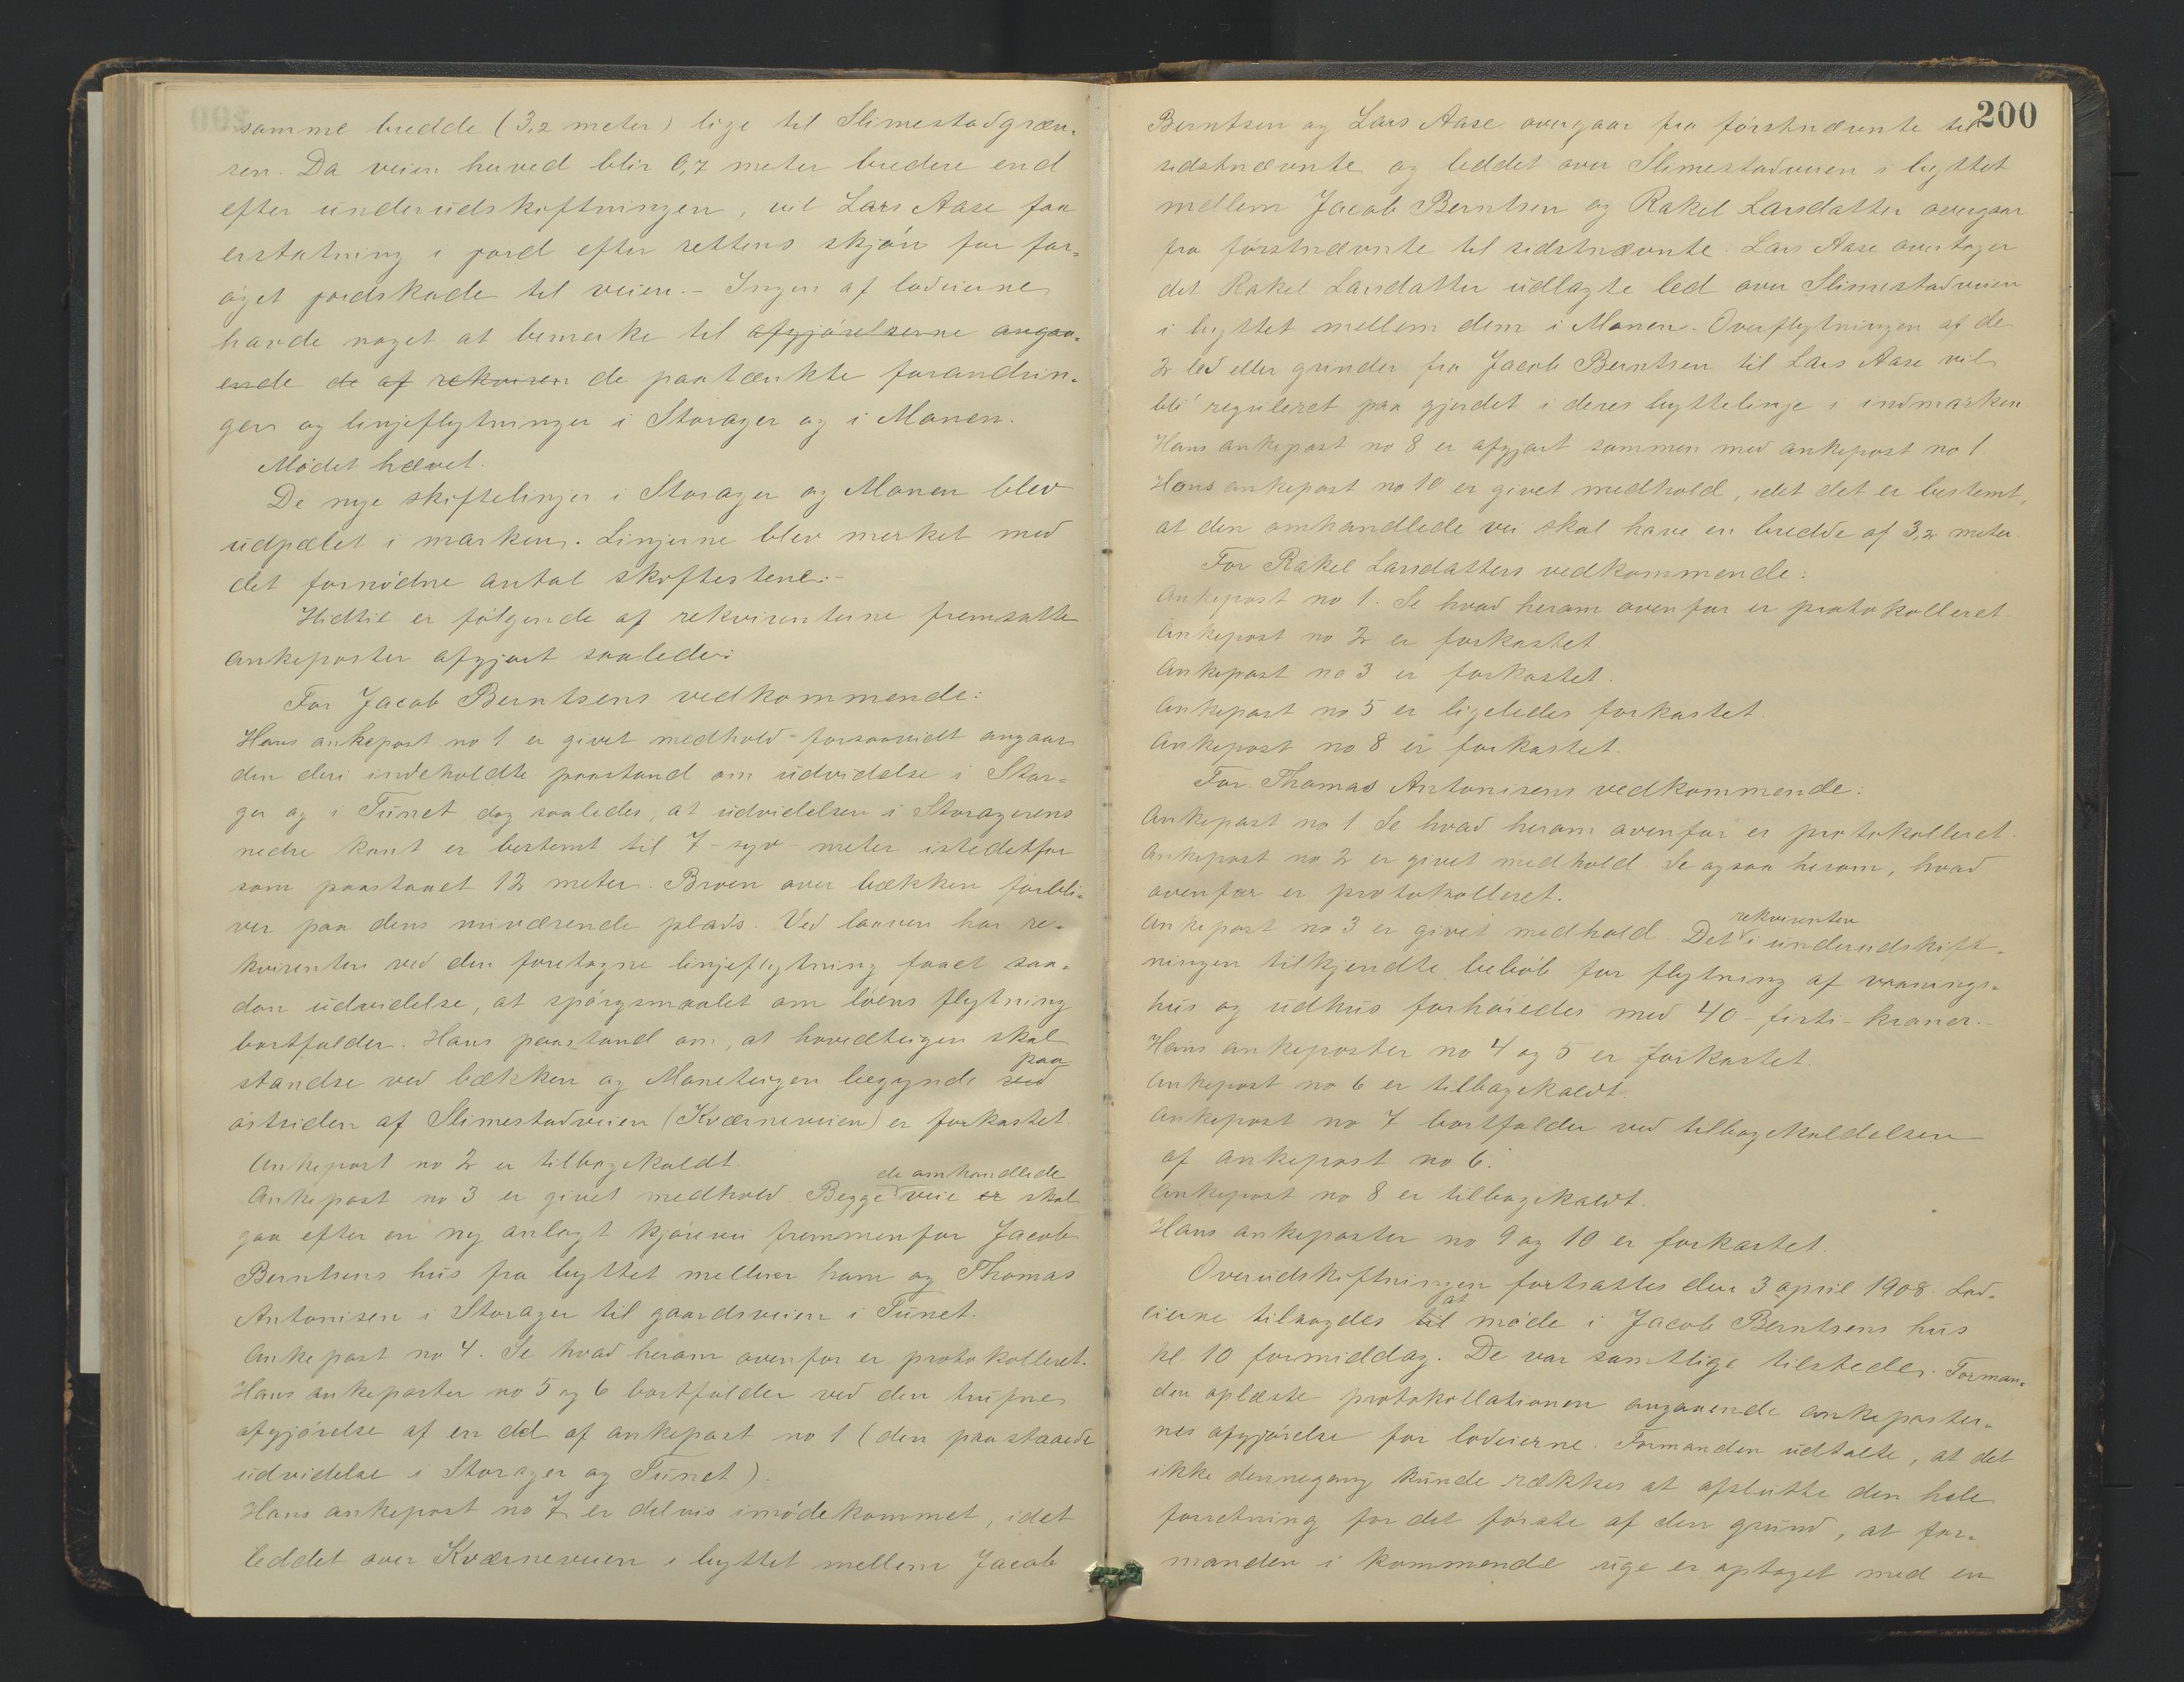 samme bredde (3,2 meter) lige til Slimestadgræn-
sen. Da veien herved blir 0,7 meter bredere end
efter underudskiftningen, vil Lars Aase faa
erstatning i jord efter rettens skjøn for for-
øget jordskade til veien. - Ingen af lodeierne
havde noget at bemerke til afgjørelserne angaa-
ende de af rekviren de paatænkte forandrin-
ger og linjeflytninger i Storager og i Manen.
Mødet hævet.
De nye skiftelinjer i Storager og Manen blev
udpælet i marken. Linjerne blev merket med
det fornødne antal skiftestene. -
Hidtil er følgende af rekvirenterne fremsatte
ankeposter afgjort saaledes:
For Jacob Berntsens vedkommende:
Hans ankepost no 1 er givet medhold forsaavidt angaar
den deri indeholdte paastand om udvidelse i Stor-
ger og i Tunet dog saaledes, at udvidelsen i Storagerens
nedre kant er bestemt til 7 - syv - meter istedetfor
som paastaaet 12 meter. Broen over bækken forbli-
ver paa dens nuværende plads. Ved laaven har re-
kvirenten ved den foretagne linjeflytning faaet saa-
dan udvidelse, at spørgsmaalet om løens flytning
bortfalder. Hans paastand om, at hovedteigen skal
standse ved bækken og Maneteigen begynde ved paa
østsiden af Slimestadveien (Kværneveien) er forkastet.
Ankepost no 2 er tilbagekaldt.
Ankepost no 3 er givet medhold. Begge de omhandlede veie er skal
gaa efter en ny anlagt kjørevei fremmenfor Jacob
Berntsens hus fra byttet mellem ham og Thomas
Antonisen i Storager til gaardsveien i Tunet.
Ankepost no 4. Se hvad herom ovenfor er protokolleret.
Hans ankeposter no 5 og 6 bortfalder ved den trufne
afgjørelse af en del af ankepost no 1 (den paastaaede
udvidelse i Storager og Tunet).
Hans ankepost no 7 er delvis imødekommet, idet
leddet over Kværneveien i byttet mellem Jacob
200
Berntsen og Lars Aase overgaar fra førstnævnte til
sidstnævnte og leddet over Slimestadveien i byttet
mellem Jacob Berntsen og Rakel Larsdatter overgaar
fra førstnævnte til sidstnævnte. Lars Aase overtager
det Rakel Larsdatter udlagte led over Slimestadveien
i byttet mellem dem i Manen. Overflytningen af de
2 led eller grinder fra Jacob Berntsen til Lars Aase vil
bli reguleret paa gjerdet i deres byttelinje i indmarken
Hans ankepost no 8 er afgjort sammen med ankepost no 1
Hans ankepost no 10 er givet medhold, idet det er bestemt,
at den omhandlede vei skal have en bredde af 3,2 meter.
For Rakel Larsdatters vedkommende:
Ankepost no 1. Se hvad herom ovenfor er protokolleret
Ankepost no 2 er forkastet.
Ankepost no 3 er forkastet.
Ankepost no 5 er ligeledes forkastet.
Ankepost no 8 er forkastet.
For Thomas Antonisens vedkommende:
Ankepost no 1. Se hvad herom ovenfor er protokolleret.
Ankepost no 2 er givet medhold. Se ogsaa herom, hvad
ovenfor er protokolleret.
Ankepost no 3 er givet medhold. Det rekvirenten i underudskift-
ningen tilkjendte beløb for flytning af vaanings-
hus og udhus forhøiedes med 40 - firti - kroner. -
Hans ankeposter no 4 og 5 er forkastet.
Ankepost no 6 er tilbagekaldt.
Ankepost no 7 bortfalder ved tilbagekaldelsen
af ankepost no 6.
Ankepost no 8 er tilbagekaldt.
Hans ankeposter no 9 og 10 er forkastet.
Overudskiftningen fortsattes den 3 april 1908. Lod-
eierne tilsagdes til at møde i Jacob Berntsens hus
kl. 10 formiddag. De var samtlige tilstede. Forman-
den oplæste protokollationen angaaende ankeposter-
nes afgjørelse for lodeierne. Formanden udtalte, at det
ikke dennegang kunde rækkes at afslutte den hele
forretning for det første af den grund, at for-
manden i kommende uge er optaget med en